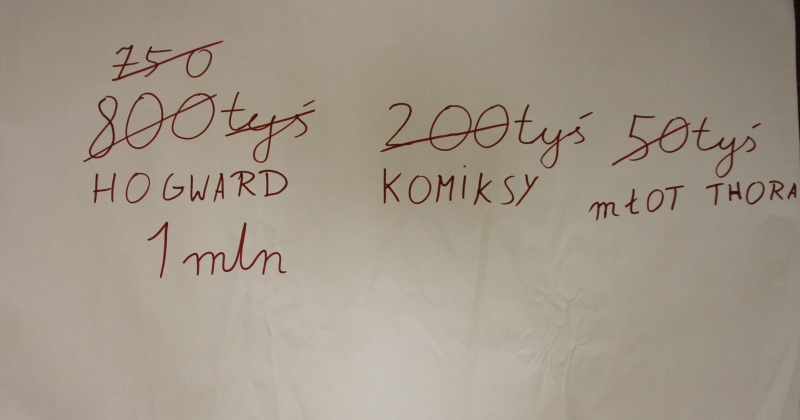 750
800tyś
HOGWARD
1 mln
200tyś
KOMIKSY
50tyś
młOT THORA